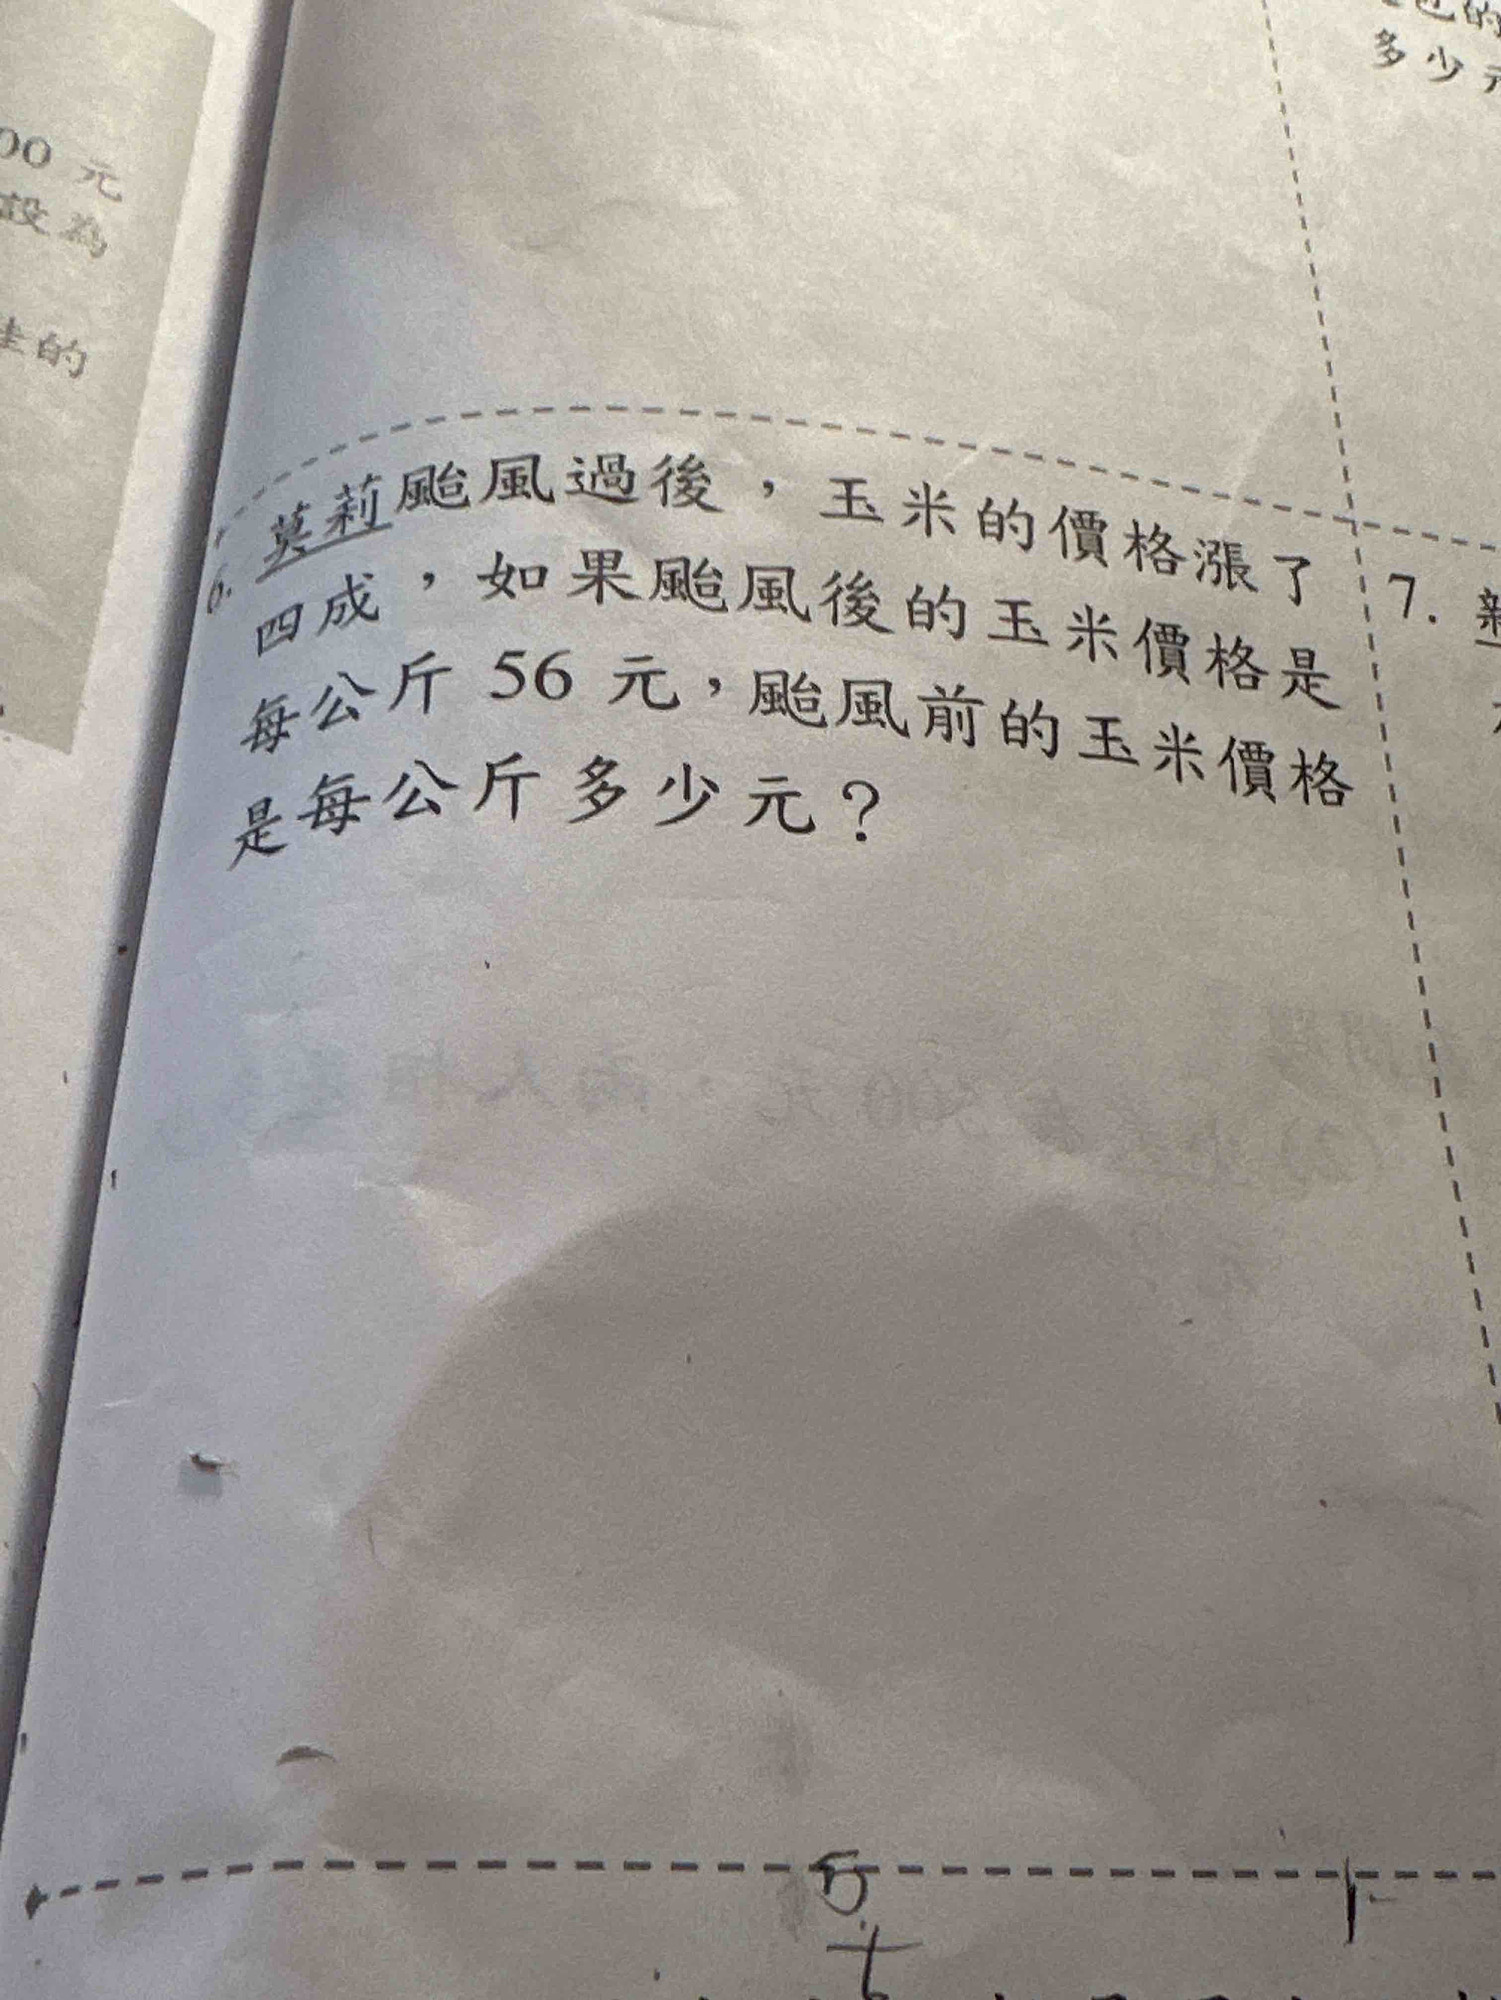 00 元
設為
的
多少
6. 莫莉颱風過後，玉米的價格漲了
四成，如果颱風後的玉米價格是
每公斤 56 元，颱風前的玉米價格
是每公斤多少元？
7.